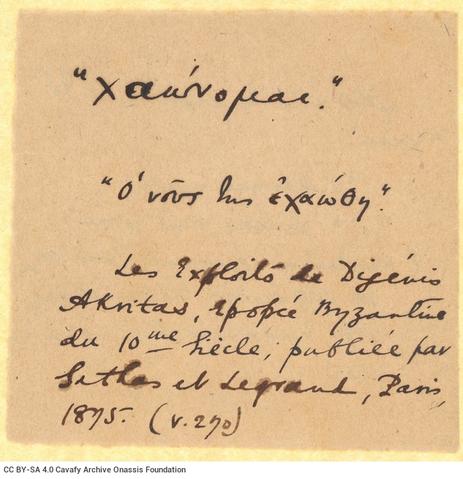 "χαώνομαι."
"Ὁ νοῦς της ἐχαώθη".
Les Exploits de Digénis
Akritas, épopée Byzantine
du 10me siècle, publiée par
Sathas et Legrand, Paris,
1875. (v. 270)
CC BY-SA 4.0 Cavafy Archive Onassis Foundation